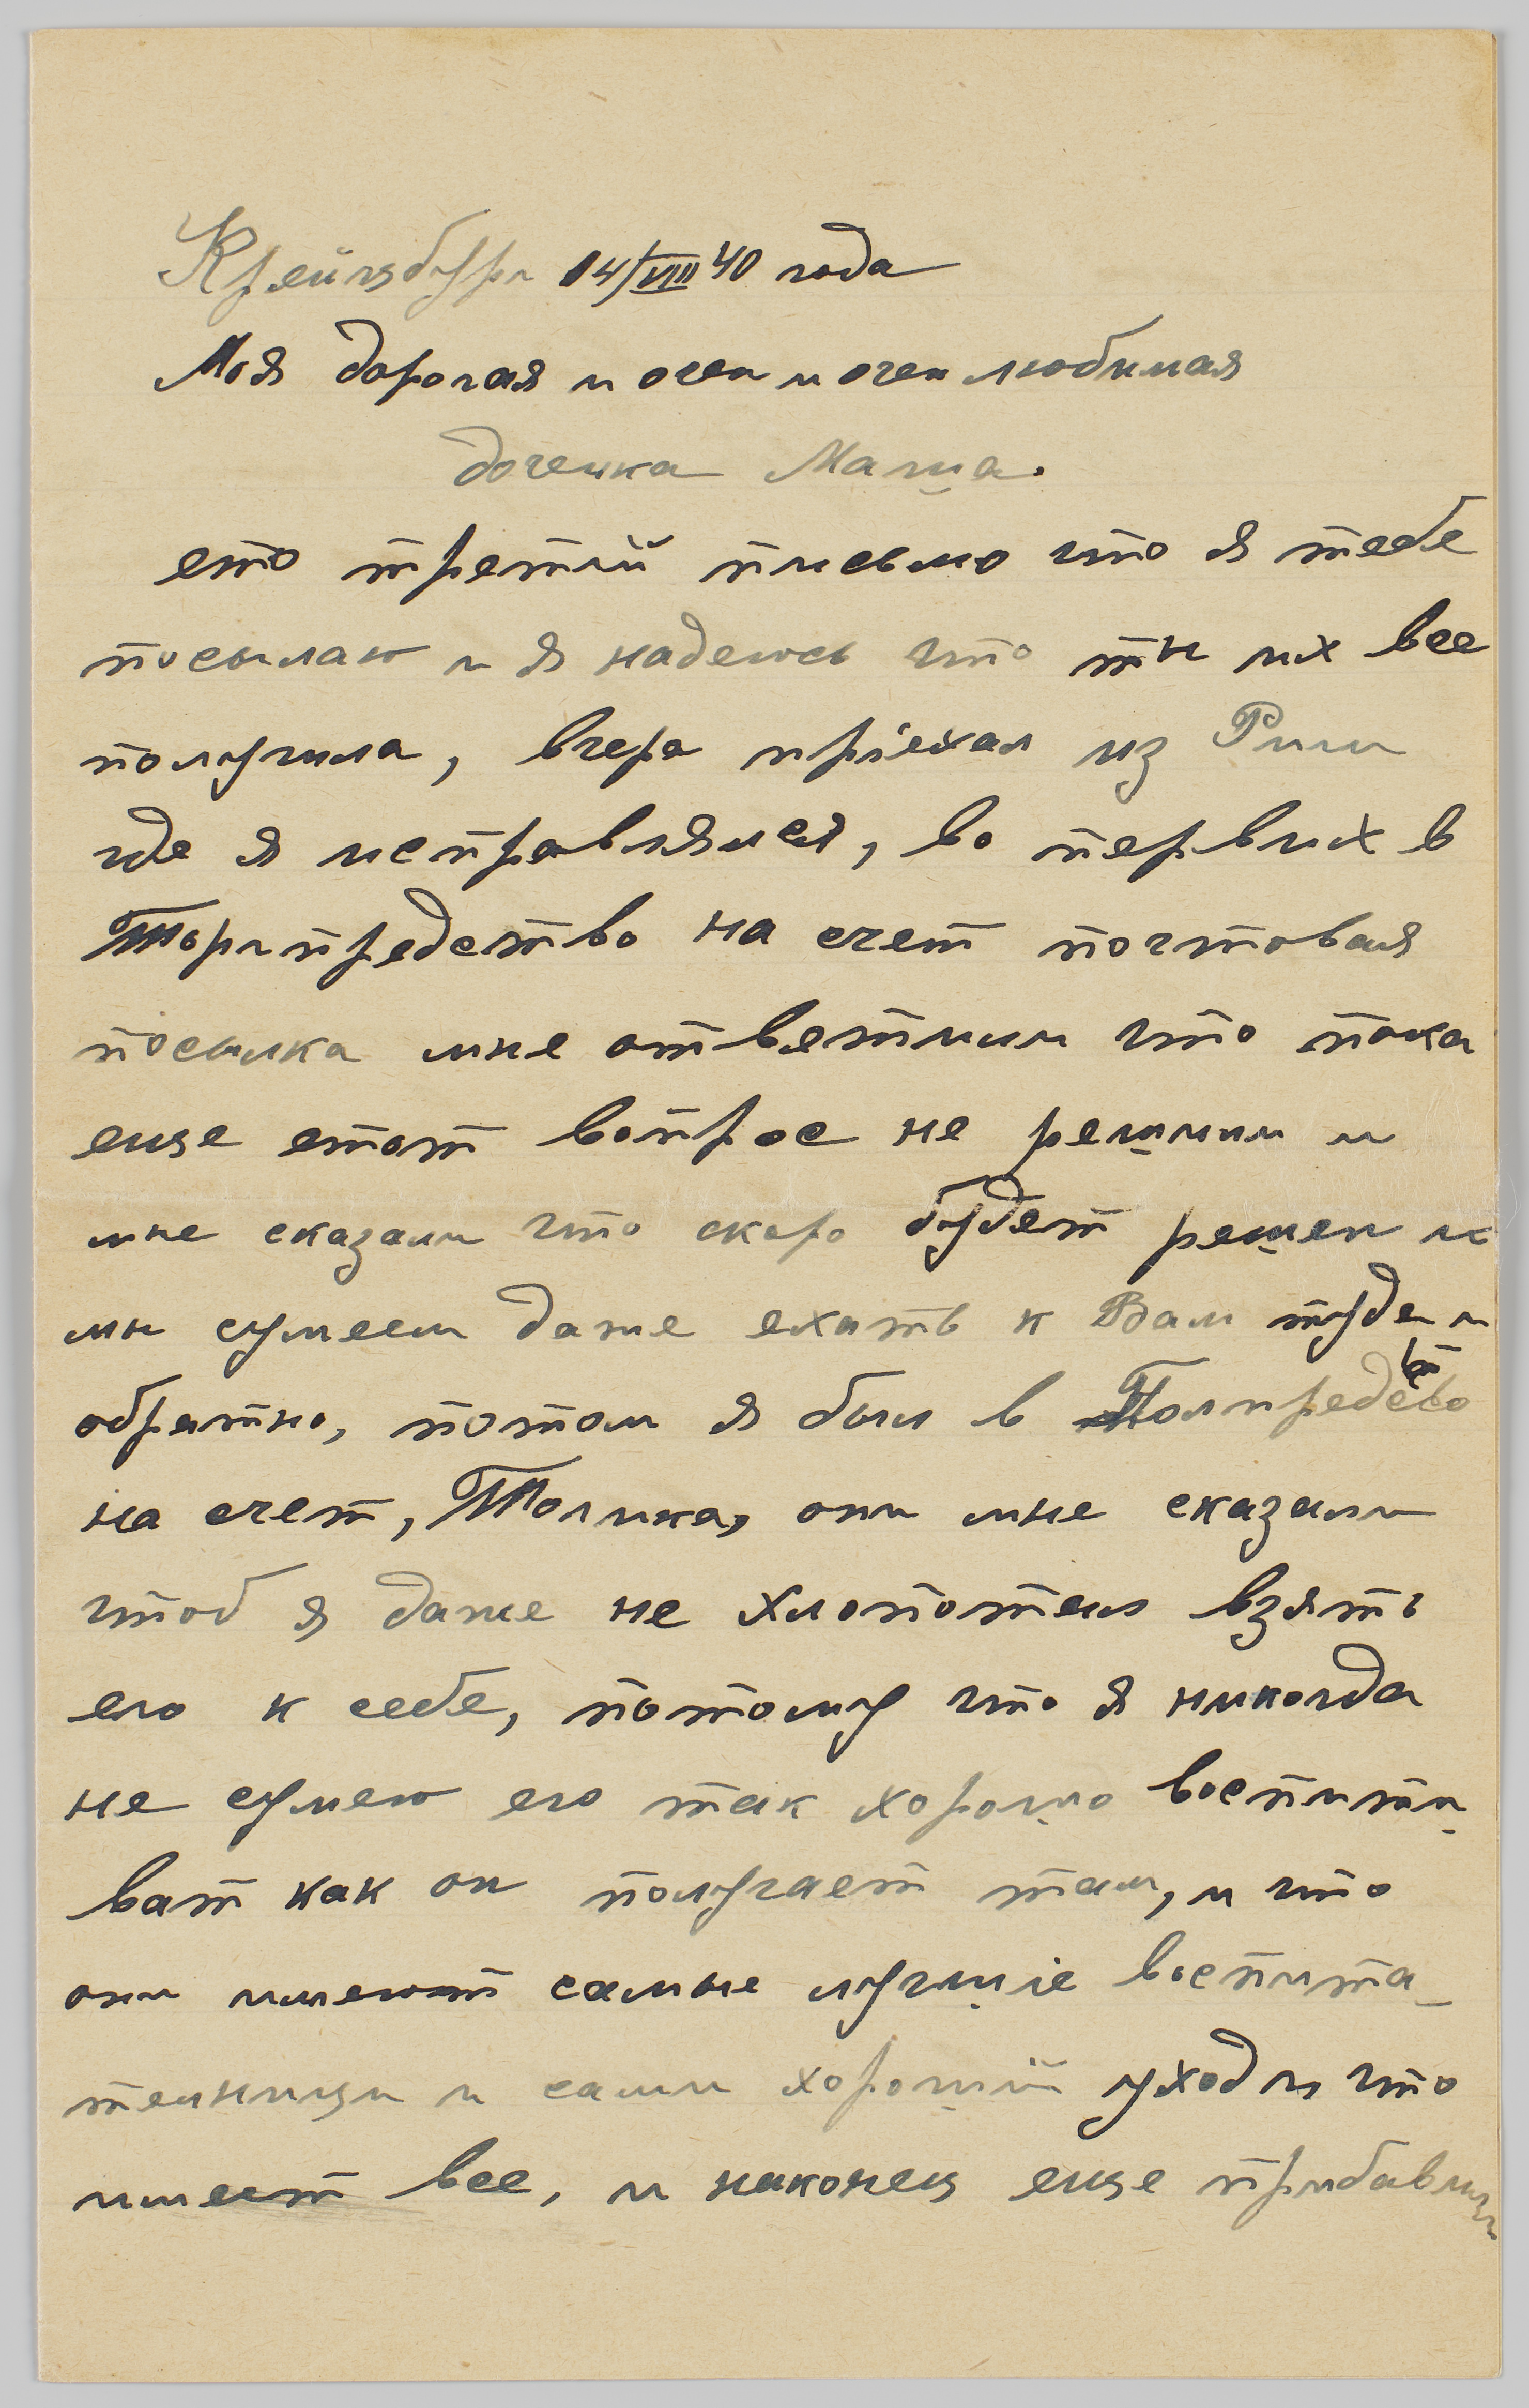 Крейцбург 14/VIII 40 года
Моя дорогая и очен и очен любимая
доченка Маша.
ето третий письмо что я тебе
посылаю и я надеюсь что ти их все
получила, вчера пріехал из Риги
где я исправлялся, во первих в
Торгпредство на счет почтовая
посылка мне ответили что пока
еще етот вопрос не решили и
мне сказали что скоро будет решен и
ми сумеем даже ехать к Вам туда и
обратно, потом я был в Полпредство
на счет, Толика, они мне сказали
чтоб я даже не хлопотал взять
его к себе, потому что я никогда
не сумею его так хорошо воспити_
ват как он получает там, и что
они имеют самые лучшіе воспита_
телници и сами хороший уход и что
имеет все, и наконец еще прибавили